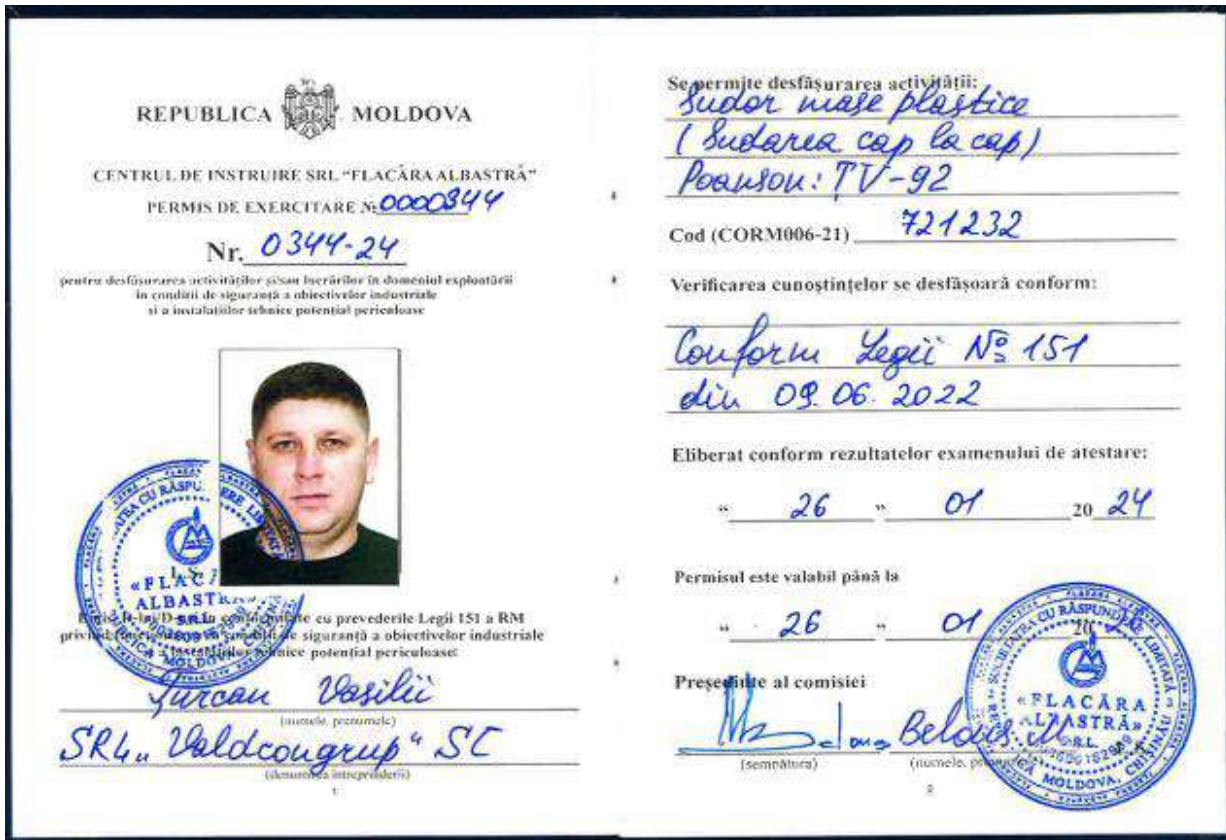 REPUBLICA MOLDOVA
CENTRUL DE INSTRUIRE SRL "FLACĂRA ALBASTRĂ"
PERMIS DE EXERCITARE № 0000344
Nr. 0344-24
pentru desfășurarea activităților și/sau lucrărilor în domeniul exploatării
în condiții de siguranță a obiectivelor industriale
și a instalațiilor tehnice potențial periculoase
L.Ș.
«FLACĂRA
ALBASTRĂ»
S.R.L.
cu prevederile Legii 151 a RM
de siguranță a obiectivelor industriale
tehnice potențial periculoase:
Țurcan Vasilii
(numele, prenumele)
SRL „Valdcongrup" SC
(denumirea întreprinderii)
1
Se permite desfășurarea activității:
Sudor mase plastice
(Sudarea cap la cap)
Poanson: TV-92
Cod (CORM006-21) 721232
Verificarea cunoștințelor se desfășoară conform:
Conform Legii № 151
din 09.06.2022
Eliberat conform rezultatelor examenului de atestare:
" 26 " 01 20 24
Permisul este valabil până la
" 26 " 01 20 26
Președinte al comisiei
Belous M.
(semnătura) (numele, prenumele)
SOCIETATEA CU RĂSPUNDERE LIMITATĂ
«FLACĂRA
ALBASTRĂ»
S.R.L.
MOLDOVA, CHIȘINĂU
2